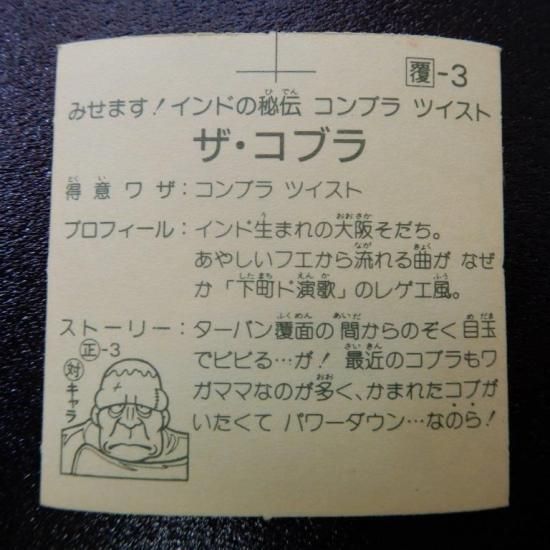 覆-3
みせます！インドの秘伝 コンブラ ツイスト
ザ・コブラ
得意ワザ：コンブラ ツイスト
プロフィール：インド生まれの大阪そだち。
あやしいフエから流れる曲が なぜ
か「下町ド演歌」のレゲエ風。
ストーリー：ターバン覆面の間からのぞく目玉
でビビる…が！ 最近のコブラもワ
ガママなのが多く、かまれたコブが
いたくて パワーダウン…なのら！
正-3
対キャラ